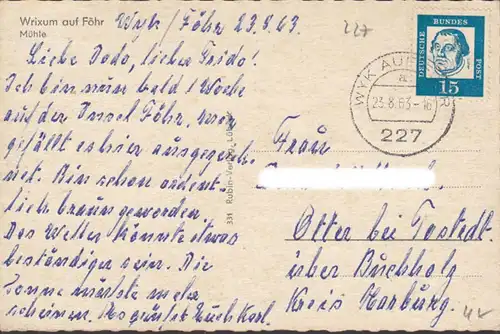 Wrixum auf Föhr
Mühle
Wyk / Föhr 23.8.63
227
Liebe Dodo, lieber Frido!
Ich bin nun bald 1 Woche
auf der Insel Föhr, mir
gefällt es hier ausgezeich-
net. Bin schon ordent-
lich braun geworden.
Das Wetter könnte etwas
beständiger sein. Die
Sonne müßte mehr
scheinen.
331 Rubin-Verlag
DEUTSCHE BUNDESPOST
15
WYK AUF
23.8.63-16
227
Frau
Otter bei Tostedt
über Buchholz
Kreis Harburg.